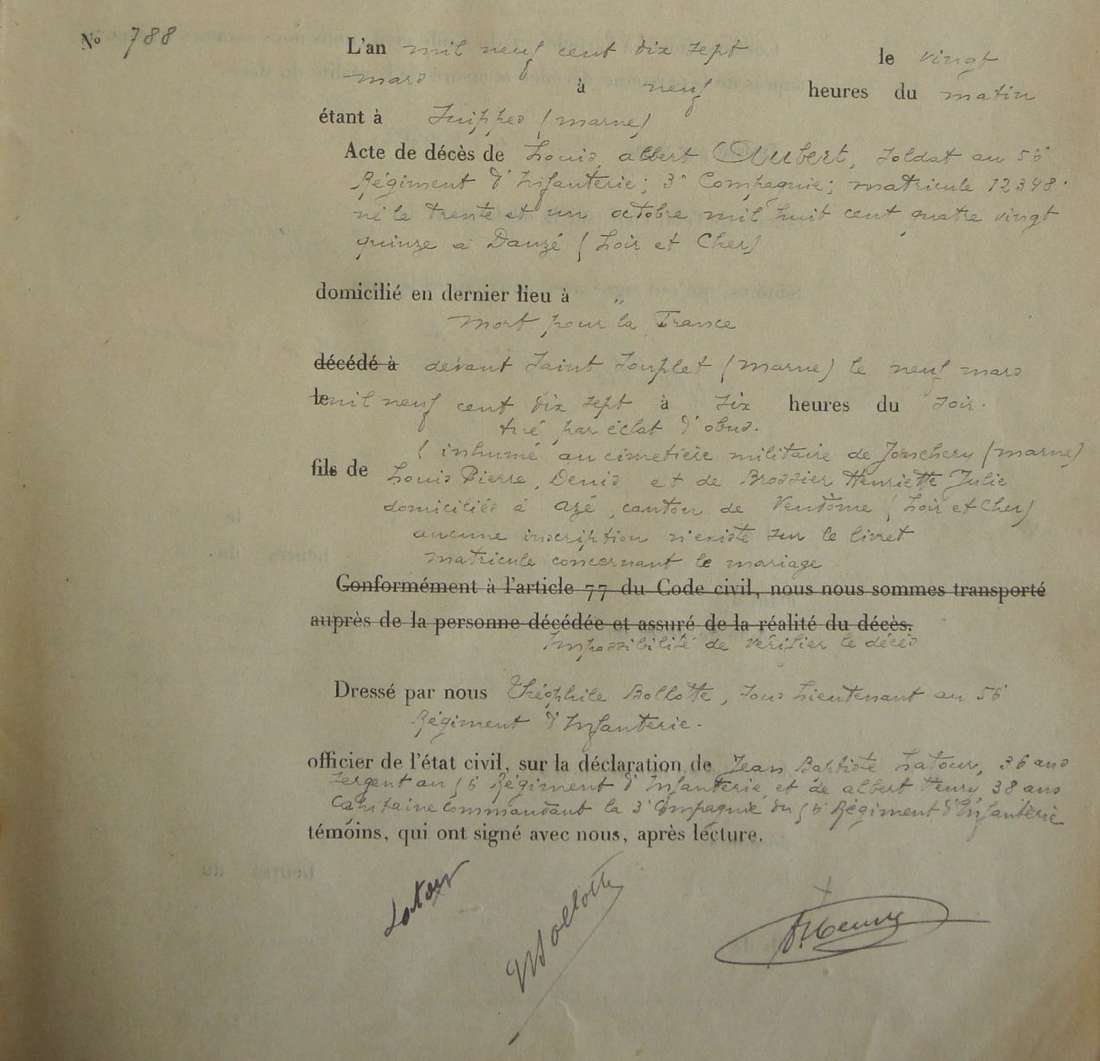 N° 788
L'an mil neuf cent dix sept le vingt
mars à neuf heures du matin
étant à Suippes (Marne)
Acte de décès de Louis, Albert Aubert, soldat au 56e
Régiment d'Infanterie; 3e Compagnie; matricule 12398.
né le trente et un octobre mil huit cent quatre vingt
quinze à Danzé (Loir et Cher)
domicilié en dernier lieu à „
Mort pour la France
décédé à devant Saint Souplet (Marne) le neuf mars
le mil neuf cent dix sept à six heures du soir.
tué par éclat d'obus.
(inhumé au cimetière militaire de Jonchery (Marne)
fils de Louis Pierre, Denis et de Brossier Henriette Julie
domiciliés à Azé, canton de Vendôme (Loir et Cher)
aucune inscription n'existe sur le livret
matricule concernant le mariage
Conformément à l'article 77 du Code civil, nous nous sommes transporté
auprès de la personne décédée et assuré de la réalité du décès.
Impossibilité de vérifier le décès
Dressé par nous Théophile Bollotte, sous Lieutenant au 56e
Régiment d'Infanterie.
officier de l'état civil, sur la déclaration de Jean Baptiste Latour, 36 ans
Sergent au 56e Régiment d'Infanterie et de Albert Henry 38 ans
Capitaine Commandant la 3e Compagnie du 56e Régiment d'Infanterie
témoins, qui ont signé avec nous, après lecture.
Latour
Bollotte
Henry